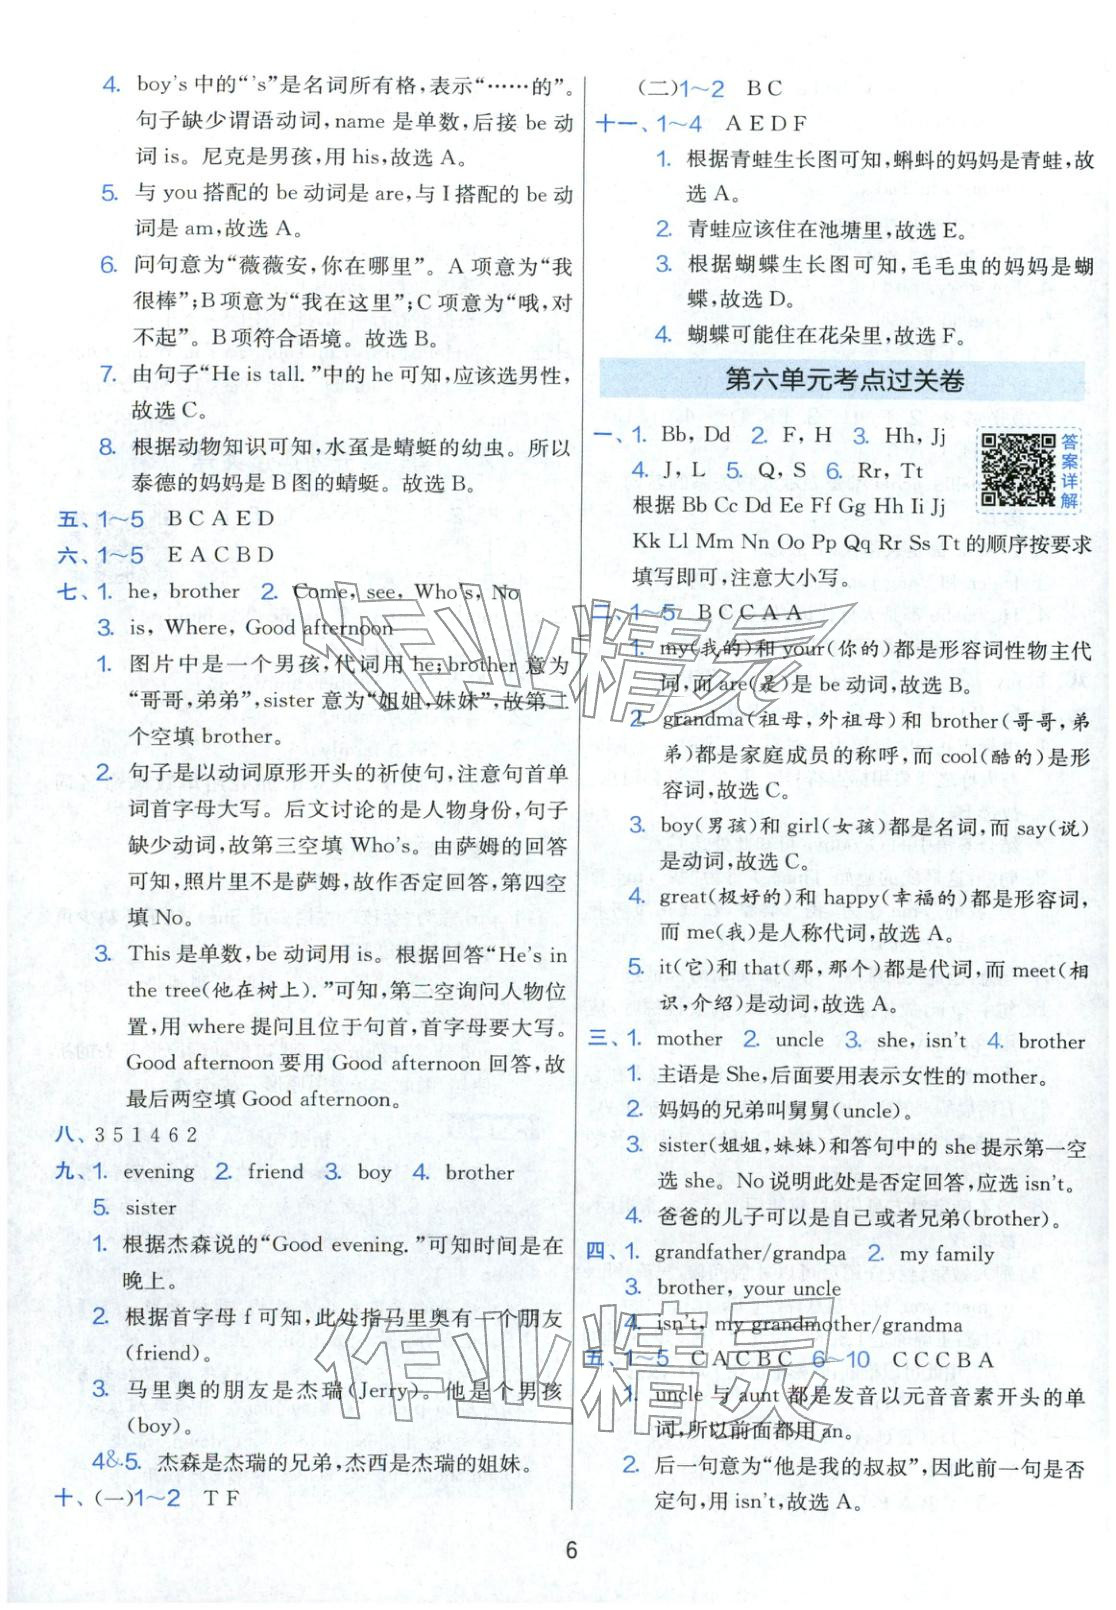 4. boy's 中的“'s”是名词所有格,表示“……的”。
句子缺少谓语动词,name 是单数,后接 be 动
词 is。尼克是男孩,用 his,故选 A。
5. 与 you 搭配的 be 动词是 are,与 I 搭配的 be 动
词是 am,故选 A。
6. 问句意为“薇薇安,你在哪里”。A 项意为“我
很棒”;B 项意为“我在这里”;C 项意为“哦,对
不起”。B 项符合语境。故选 B。
7. 由句子“He is tall.”中的 he 可知,应该选男性,
故选 C。
8. 根据动物知识可知,水虿是蜻蜓的幼虫。所以
泰德的妈妈是 B 图的蜻蜓。故选 B。
五、1～5 B C A E D
六、1～5 E A C B D
七、1. he, brother 2. Come, see, Who's, No
3. is, Where, Good afternoon
1. 图片中是一个男孩,代词用 he;brother 意为
“哥哥,弟弟”,sister 意为“姐姐,妹妹”,故第二
个空填 brother。
2. 句子是以动词原形开头的祈使句,注意句首单
词首字母大写。后文讨论的是人物身份,句子
缺少动词,故第三空填 Who's。由萨姆的回答
可知,照片里不是萨姆,故作否定回答,第四空
填 No。
3. This 是单数,be 动词用 is。根据回答“He's in
the tree(他在树上).”可知,第二空询问人物位
置,用 where 提问且位于句首,首字母要大写。
Good afternoon 要用 Good afternoon 回答,故
最后两空填 Good afternoon。
八、3 5 1 4 6 2
九、1. evening 2. friend 3. boy 4. brother
5. sister
1. 根据杰森说的“Good evening.”可知时间是在
晚上。
2. 根据首字母 f 可知,此处指马里奥有一个朋友
(friend)。
3. 马里奥的朋友是杰瑞(Jerry)。他是个男孩
(boy)。
4&5. 杰森是杰瑞的兄弟,杰西是杰瑞的姐妹。
十、(一)1～2 T F
(二)1～2 B C
十一、1～4 A E D F
1. 根据青蛙生长图可知,蝌蚪的妈妈是青蛙,故
选 A。
2. 青蛙应该住在池塘里,故选 E。
3. 根据蝴蝶生长图可知,毛毛虫的妈妈是蝴
蝶,故选 D。
4. 蝴蝶可能住在花朵里,故选 F。
第六单元考点过关卷
一、1. Bb, Dd 2. F, H 3. Hh, Jj
4. J, L 5. Q, S 6. Rr, Tt
答案详解
根据 Bb Cc Dd Ee Ff Gg Hh Ii Jj
Kk Ll Mm Nn Oo Pp Qq Rr Ss Tt 的顺序按要求
填写即可,注意大小写。
二、1～5 B C C A A
1. my(我的)和 your(你的)都是形容词性物主代
词,而 are(是)是 be 动词,故选 B。
2. grandma(祖母,外祖母)和 brother(哥哥,弟
弟)都是家庭成员的称呼,而 cool(酷的)是形
容词,故选 C。
3. boy(男孩)和 girl(女孩)都是名词,而 say(说)
是动词,故选 C。
4. great(极好的)和 happy(幸福的)都是形容词,
而 me(我)是人称代词,故选 A。
5. it(它)和 that(那,那个)都是代词,而 meet(相
识,介绍)是动词,故选 A。
三、1. mother 2. uncle 3. she, isn't 4. brother
1. 主语是 She,后面要用表示女性的 mother。
2. 妈妈的兄弟叫舅舅(uncle)。
3. sister(姐姐,妹妹)和答句中的 she 提示第一空
选 she。No 说明此处是否定回答,应选 isn't。
4. 爸爸的儿子可以是自己或者兄弟(brother)。
四、1. grandfather/grandpa 2. my family
3. brother, your uncle
4. isn't, my grandmother/grandma
五、1～5 C A C B C 6～10 C C C B A
1. uncle 与 aunt 都是发音以元音音素开头的单
词,所以前面都用 an。
2. 后一句意为“他是我的叔叔”,因此前一句是否
定句,用 isn't,故选 A。
6
作业精灵
作业精灵